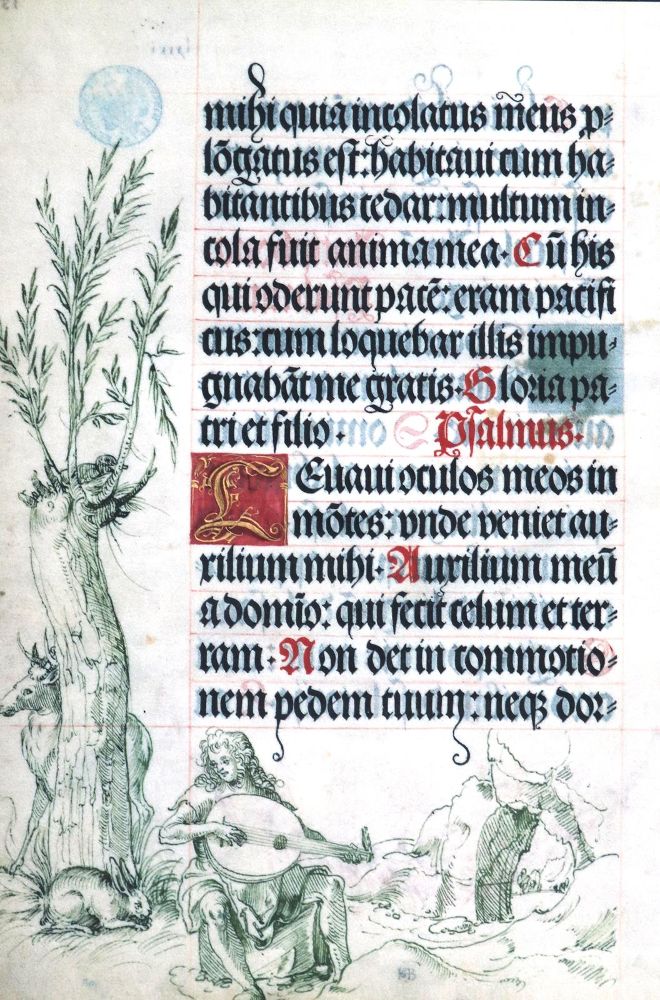 mihi quia incolatus me᷑us p⸗
lōgatus est: habitaui cum ha⸗
bitantibus cedar: multum in⸗
cola fuit anima mea. Cū his
qui oderunt pacē: eram pacifi
cus: cum loquebar illis impu⸗
gnabāt me gratis. Gloria pa⸗
tri et filio.
Psalmus.
LEuaui oculos meos in
mōtes: vnde veniet au⸗
xilium mihi. Auxilium meū
a domīo: qui fecit celum et ter⸗
ram. Non det in commotio⸗
nem pedem tuum: neqꝫ dor⸗